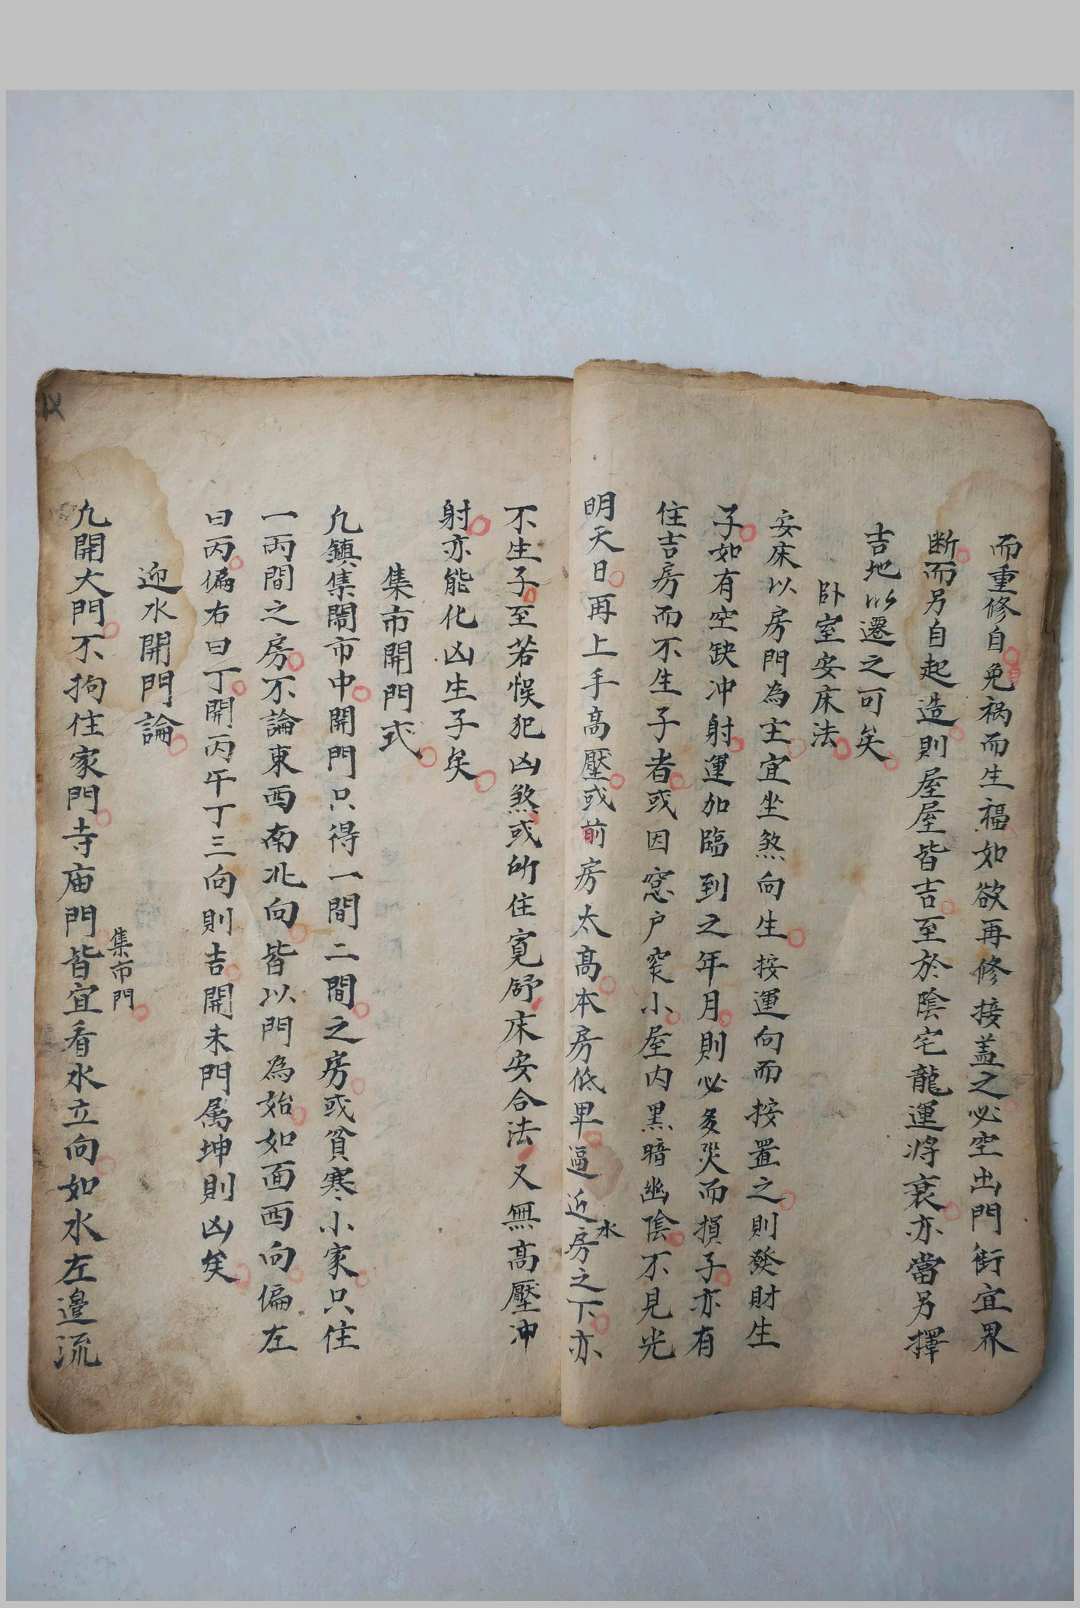 而重修自免祸而生福如欲再修接盖之必空出門街宜界
断而另自起造則屋屋皆吉至於陰宅龍運将衰亦當另擇
吉地以遷之可矣
卧室安床法
安床以房門為主宜坐煞向生按運向而按置之則發財生
子如有空缺冲射運加臨到之年月則必多災而損子亦有
住吉房而不生子者或因窓户窄小屋内黑暗幽陰不見光
明天日再上手高壓或前房太高本房低卑逼近房之下亦
水
不生子至若悮犯凶煞或所住寬舒床安合法又無高壓冲
射亦能化凶生子矣
集市開門式
凢鎮集鬧市中開門只得一間二間之房或貧寒小家只住
一兩間之房不論東西南北向皆以門為始如面西向偏左
曰丙偏右曰丁開丙午丁三向則吉開未門属坤則凶矣
迎水開門論
集市門
凢開大門不拘住家門寺庙門皆宜看水立向如水左邉流